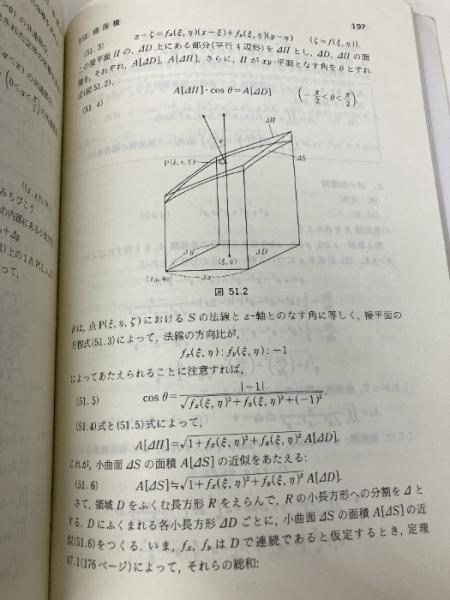 §51 曲面積 197
(51.3) z−ζ=f_x(ξ, η)(x−ξ)+f_y(ξ, η)(y−η) (ζ=f(ξ, η)).
この接平面 Π の, ΔD 上にある部分(平行4辺形)を ΔΠ とし, ΔD, ΔΠ の面
積を, それぞれ, A[ΔD], A[ΔΠ], さらに, Π が xy-平面となす角を θ とすれ
ば(図 51.2),
(51.4) A[ΔΠ]・cos θ=A[ΔD] (−π/2<θ<π/2)
ΔΠ
θ
ΔS
P(ξ, η, ζ)
Δy
(ξ, η)
ΔD
Δx
図 51.2
θ は, 点 P(ξ, η, ζ) における S の法線と z-軸とのなす角に等しく, 接平面の
方程式(51.3)によって, 法線の方向比が,
f_x(ξ, η) : f_y(ξ, η) : −1
によってあたえられることに注意すれば,
(51.5) cos θ=|−1|/√(f_x(ξ, η)²+f_y(ξ, η)²+(−1)²).
(51.4)式と(51.5)式によって,
A[ΔΠ]=√(1+f_x(ξ, η)²+f_y(ξ, η)²) A[ΔD].
これが, 小曲面 ΔS の面積 A[ΔS] の近似をあたえる:
(51.6) A[ΔS]≒√(1+f_x(ξ, η)²+f_y(ξ, η)²) A[ΔD].
さて, 領域 D をふくむ長方形 R をえらんで, R の小長方形への分割を Δ と
する. D にふくまれる各小長方形 ΔD ごとに, 小曲面 ΔS の面積 A[ΔS] の近
似(51.6)をつくる. いま, f_x, f_y は D で連続であると仮定するとき, 定理
47.1(176ページ)によって, それらの総和: